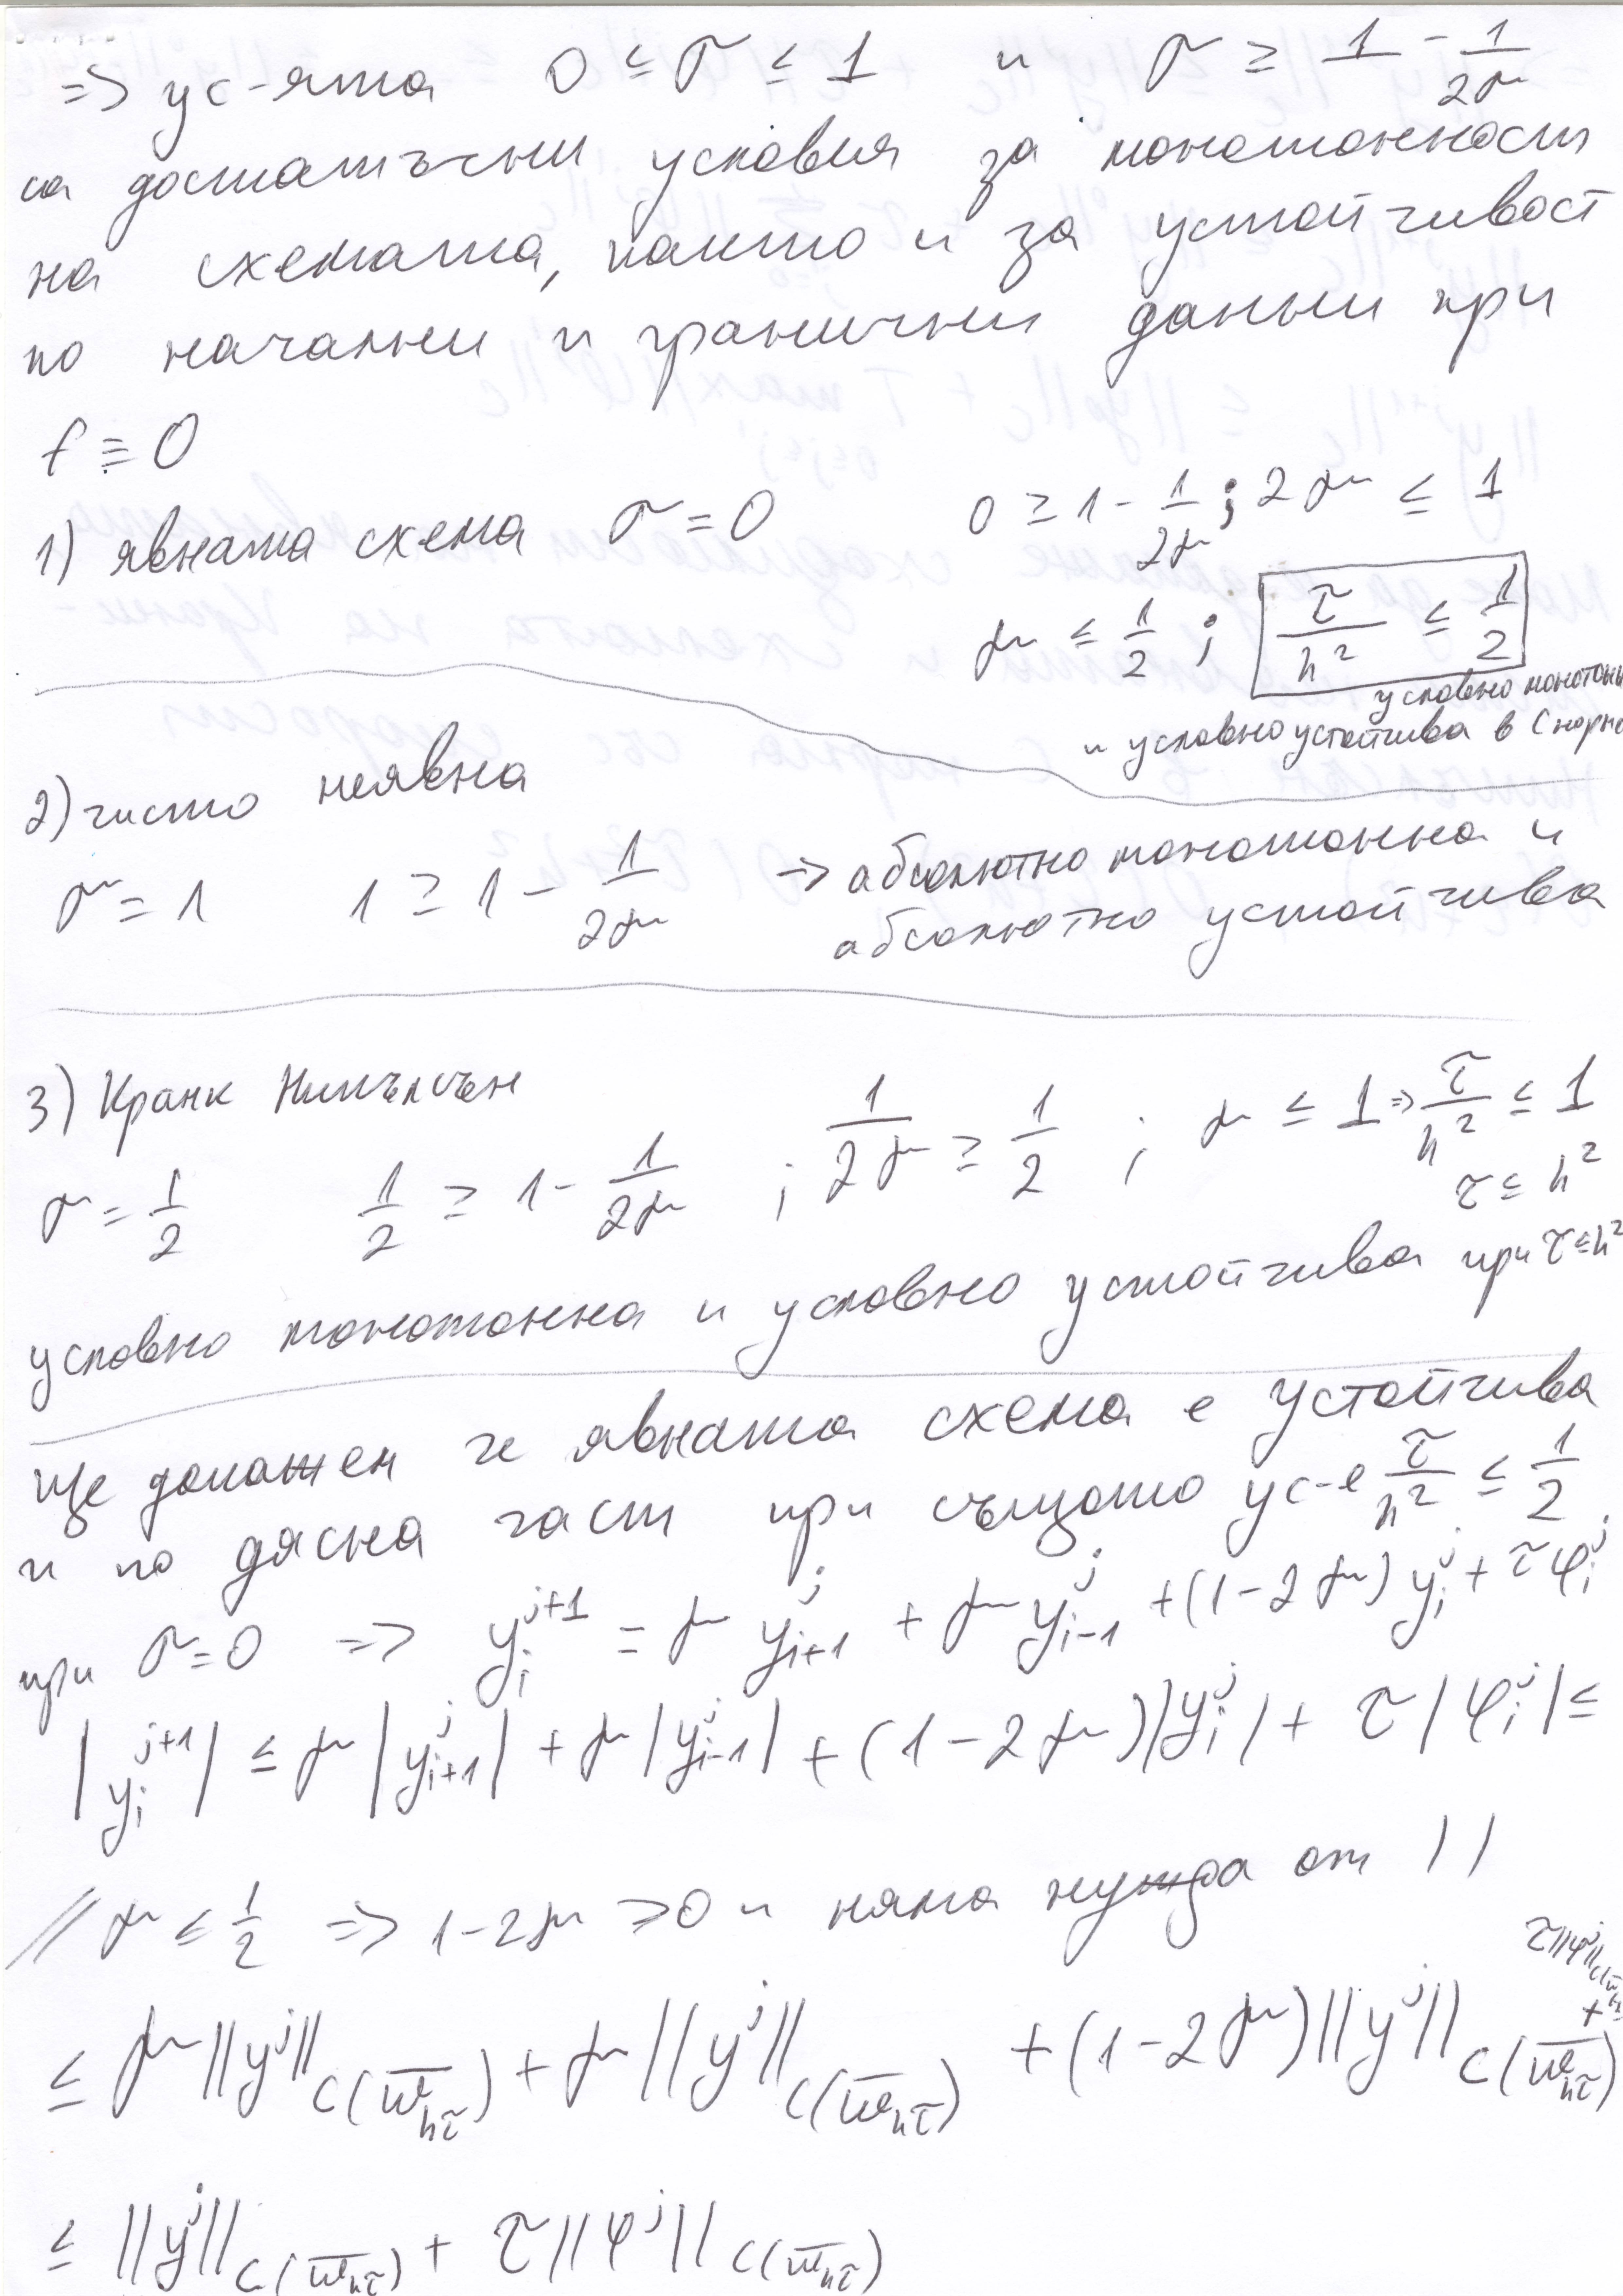 => ус-ята 0 ≤ σ ≤ 1 и σ ≥ 1 - 1/(2μ)
са достатъчни условия за монотонност
на схемата, както и за устойчивост
по начални и гранични данни при
f ≡ 0
1) явната схема σ = 0 0 ≥ 1 - 1/(2μ) ; 2μ ≤ 1
μ ≤ 1/2 ; τ/h² ≤ 1/2
условно монотонна
и условно устойчива в C норма
2) чисто неявна
σ = 1 1 ≥ 1 - 1/(2μ) -> абсолютно монотонна и
абсолютно устойчива
3) Кранк Никълсън
σ = 1/2 1/2 ≥ 1 - 1/(2μ) ; 1/(2μ) ≥ 1/2 ; μ ≤ 1 => τ/h² ≤ 1
τ ≤ h²
условно монотонна и условно устойчива при τ ≤ h²
Ще докажем че явната схема е устойчива
и по дясна част при същото ус-е τ/h² ≤ 1/2
при σ = 0 => y_i^{j+1} = μ y_{i+1}^j + μ y_{i-1}^j + (1-2μ) y_i^j + τ φ_i^j
|y_i^{j+1}| ≤ μ |y_{i+1}^j| + μ |y_{i-1}^j| + (1-2μ) |y_i^j| + τ |φ_i^j| ≤
// μ ≤ 1/2 => 1-2μ ≥ 0 и няма нужда от | |
≤ μ ||y^j||_{C(ω̄_{hτ})} + μ ||y^j||_{C(ω̄_{hτ})} + (1-2μ) ||y^j||_{C(ω̄_{hτ})} + τ||φ^j||_{C(ω̄_{hτ})}
≤ ||y^j||_{C(ω̄_{hτ})} + τ ||φ^j||_{C(ω̄_{hτ})}